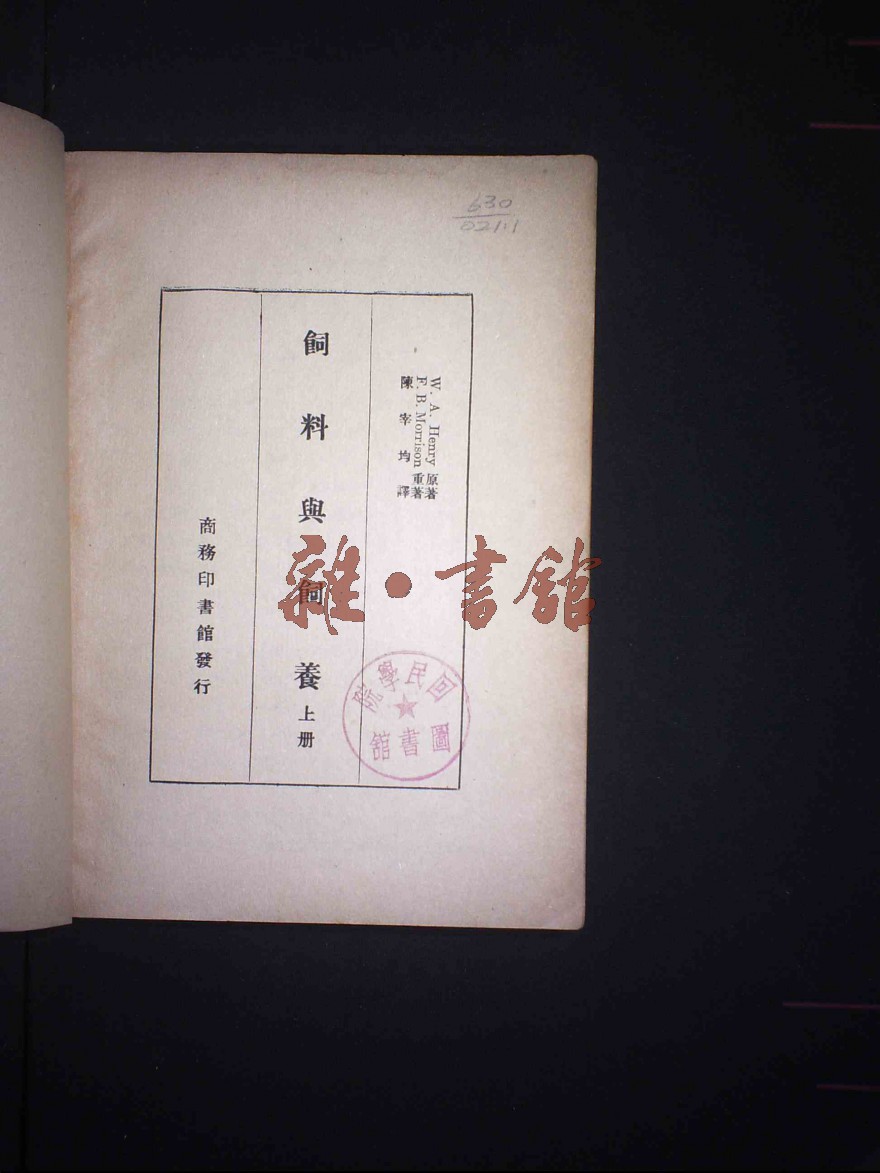 630
021:1
W. A. Henry 原著
F. B. Morrison 重著
陳宰均譯
飼料與飼養上册
商務印書館發行
雜·書館
回民學院
圖書館